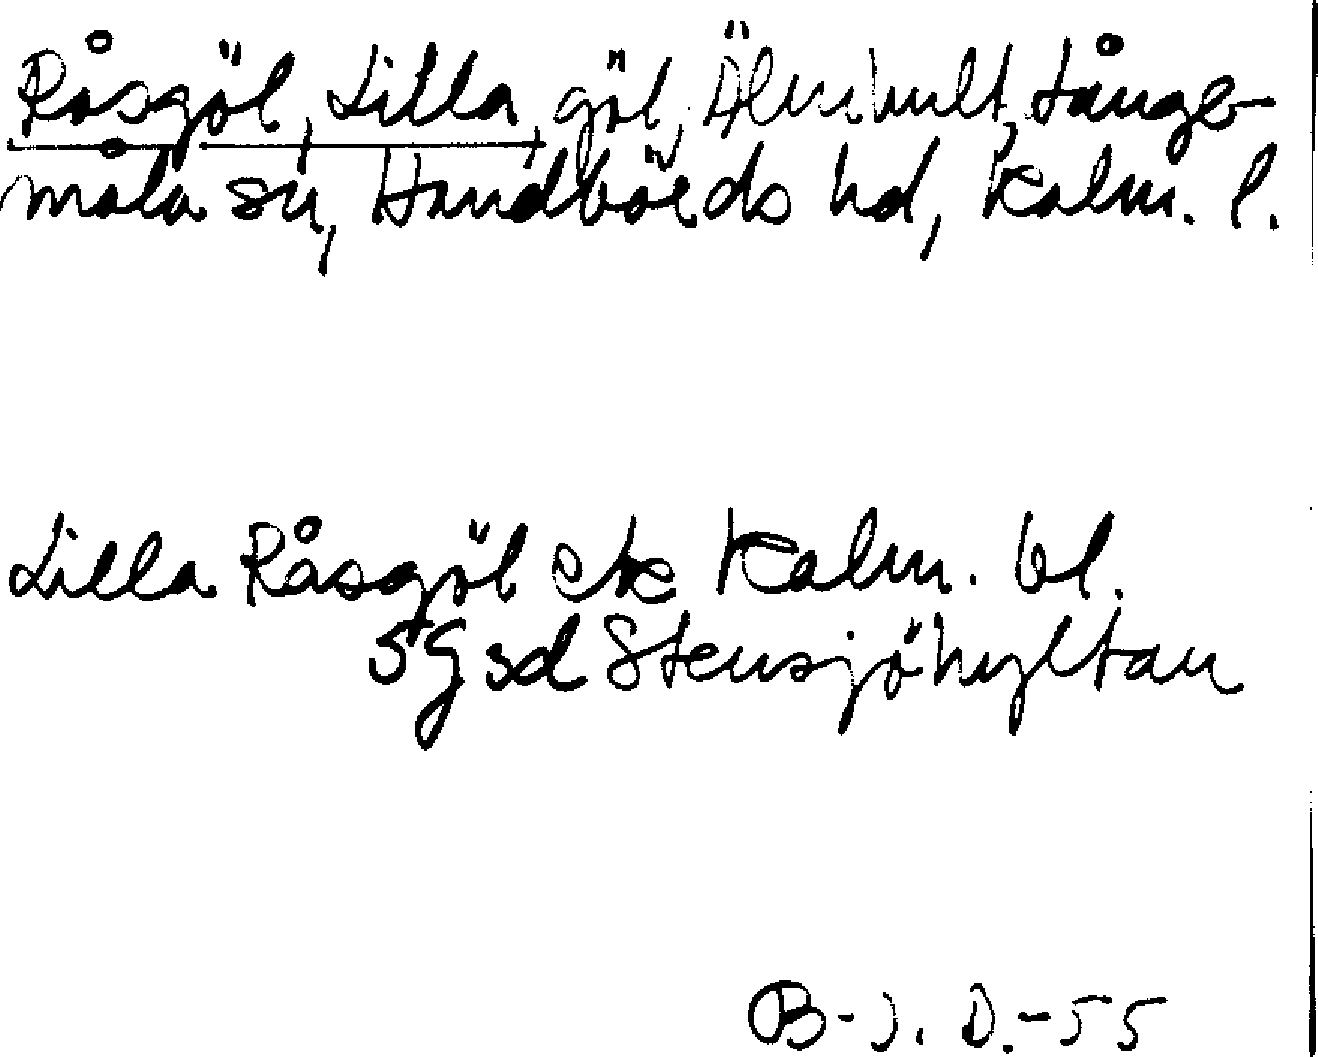 Råsgöl, Lilla, göl, Älmhult, Långe-
måla sn, Handbörds hd, Kalm. l.
Lilla Råsgöl ek Kalm. bl.
5 G sd Stensjöhyltan
B-J. D.-55